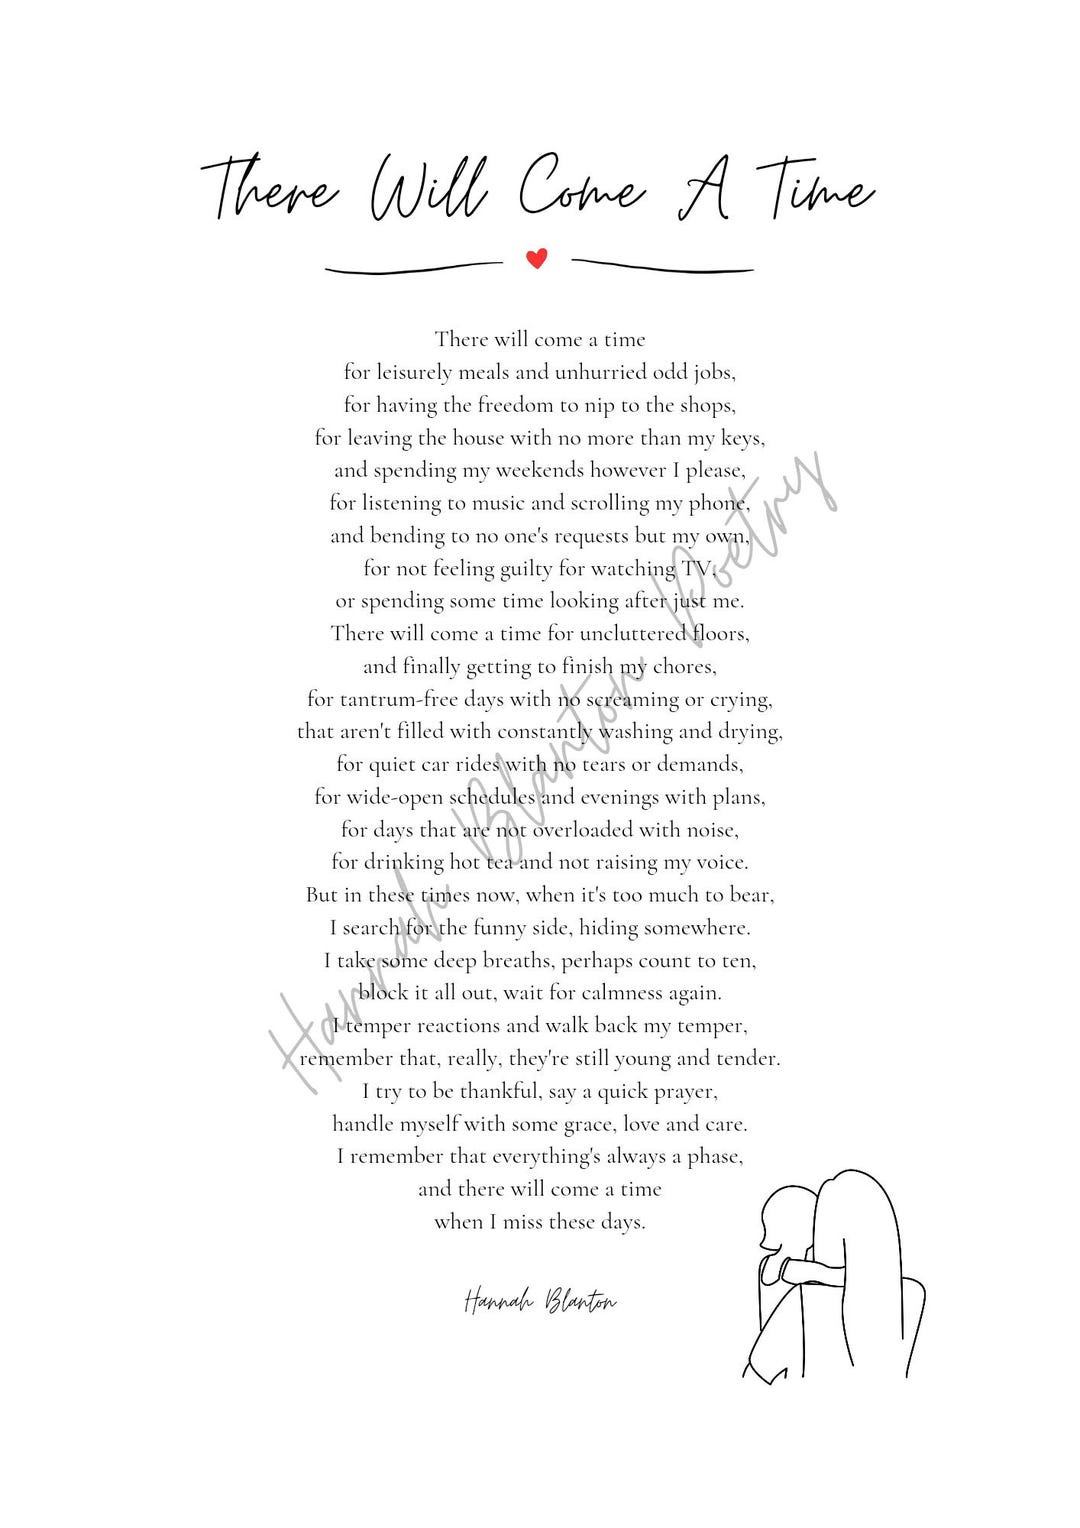 There Will Come A Time
There will come a time
for leisurely meals and unhurried odd jobs,
for having the freedom to nip to the shops,
for leaving the house with no more than my keys,
and spending my weekends however I please,
for listening to music and scrolling my phone,
and bending to no one's requests but my own,
for not feeling guilty for watching TV,
or spending some time looking after just me.
There will come a time for uncluttered floors,
and finally getting to finish my chores,
for tantrum-free days with no screaming or crying,
that aren't filled with constantly washing and drying,
for quiet car rides with no tears or demands,
for wide-open schedules and evenings with plans,
for days that are not overloaded with noise,
for drinking hot tea and not raising my voice.
But in these times now, when it's too much to bear,
I search for the funny side, hiding somewhere.
I take some deep breaths, perhaps count to ten,
block it all out, wait for calmness again.
I temper reactions and walk back my temper,
remember that, really, they're still young and tender.
I try to be thankful, say a quick prayer,
handle myself with some grace, love and care.
I remember that everything's always a phase,
and there will come a time
when I miss these days.
Hannah Blanton
Hannah Blanton Poetry